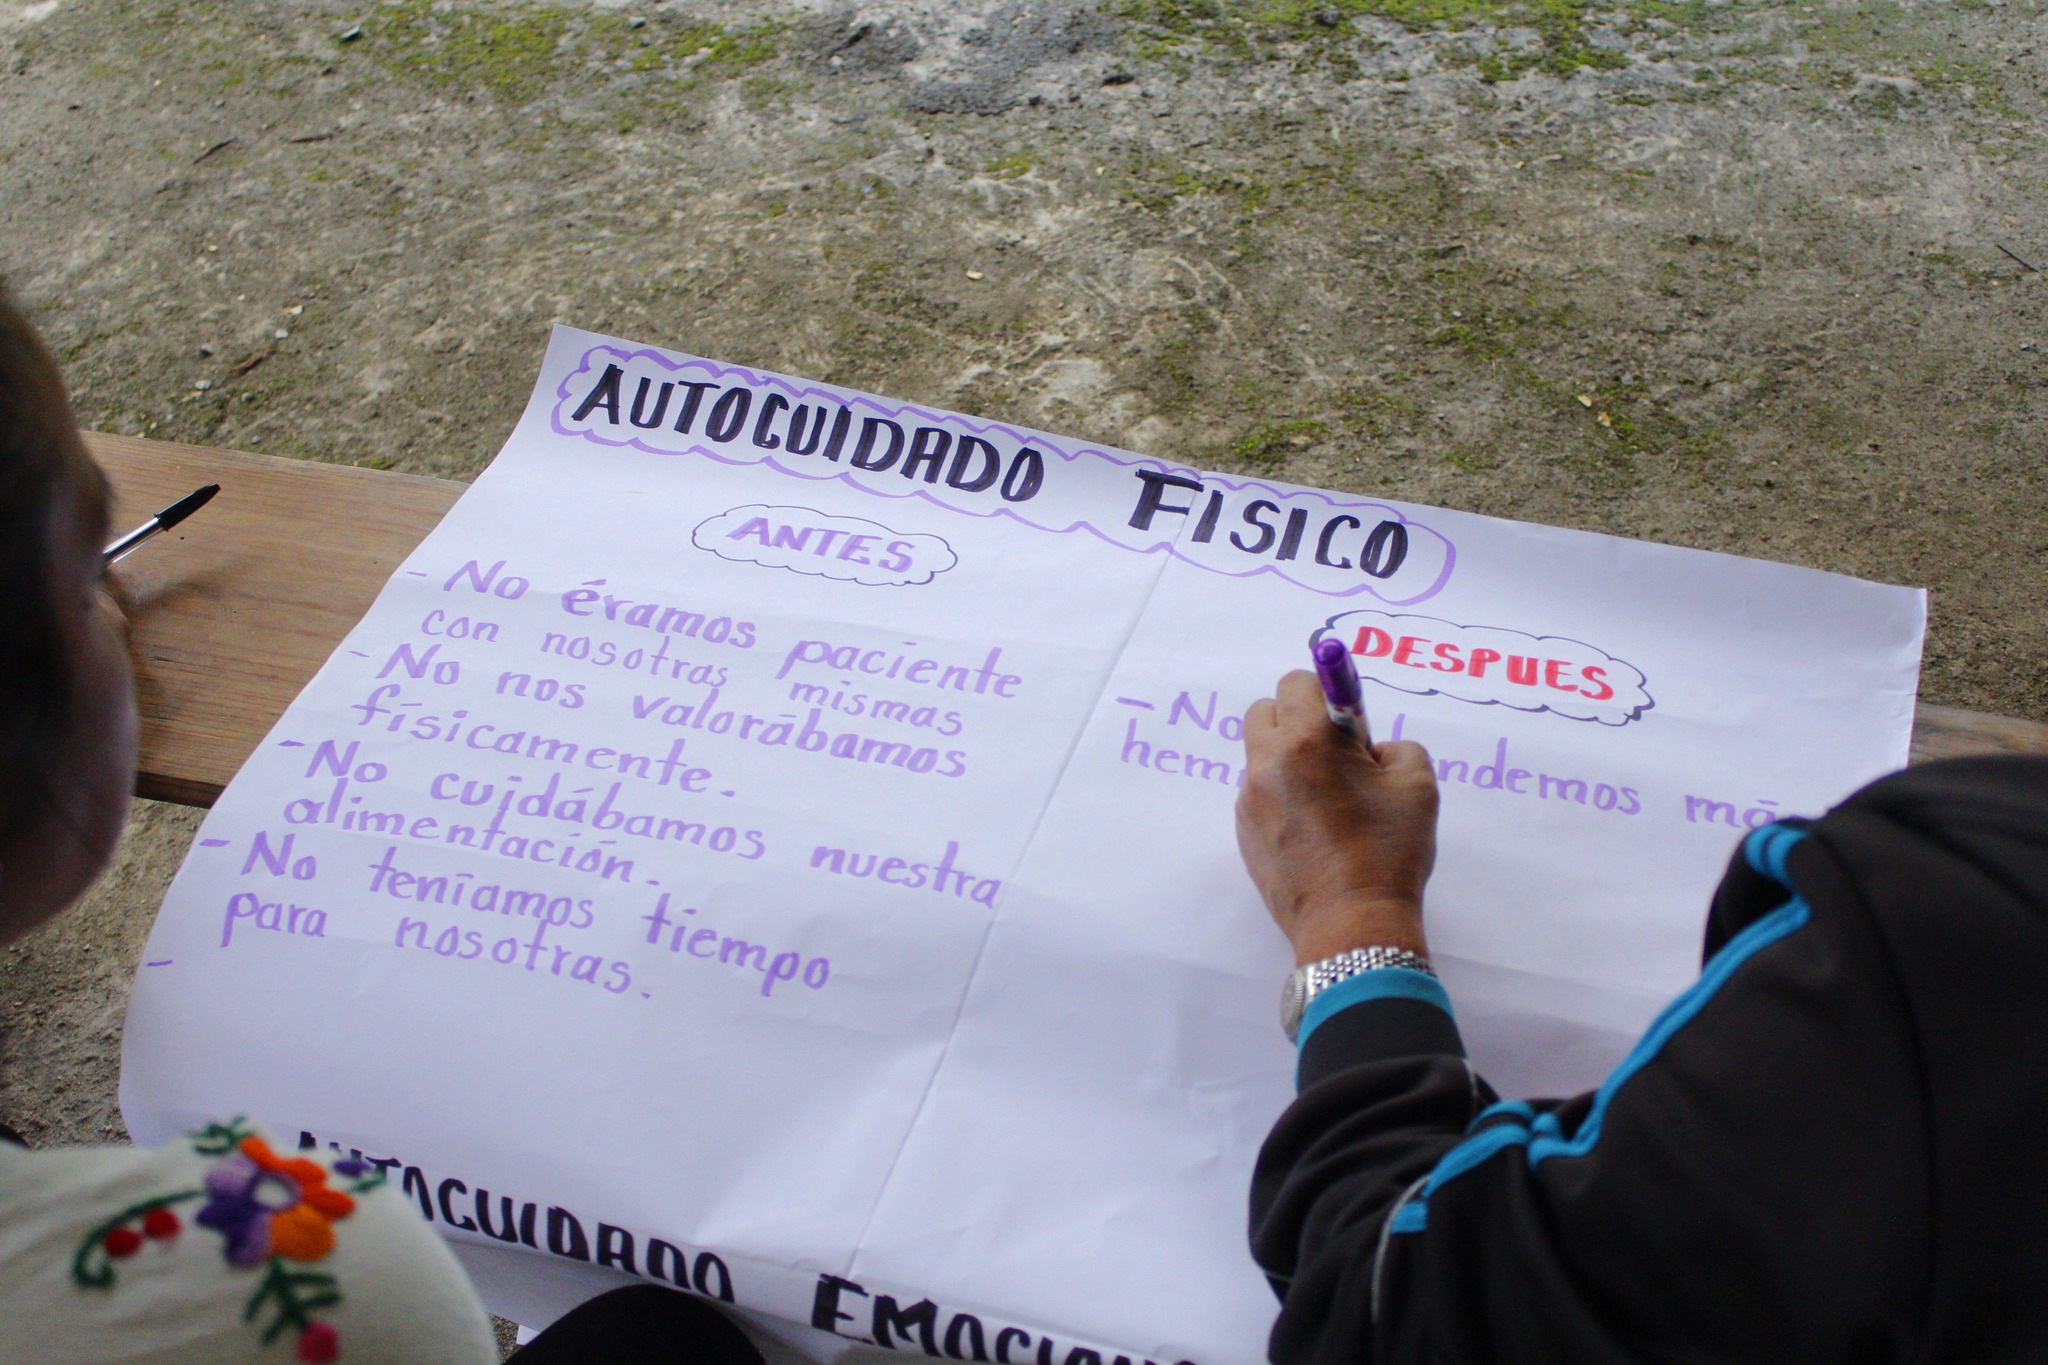 AUTOCUIDADO FISICO
ANTES
- No éramos paciente
con nosotras mismas
- No nos valorábamos
físicamente.
- No cuidábamos nuestra
alimentación.
- No teníamos tiempo
para nosotras.
-
DESPUES
- No
AUTOCUIDADO